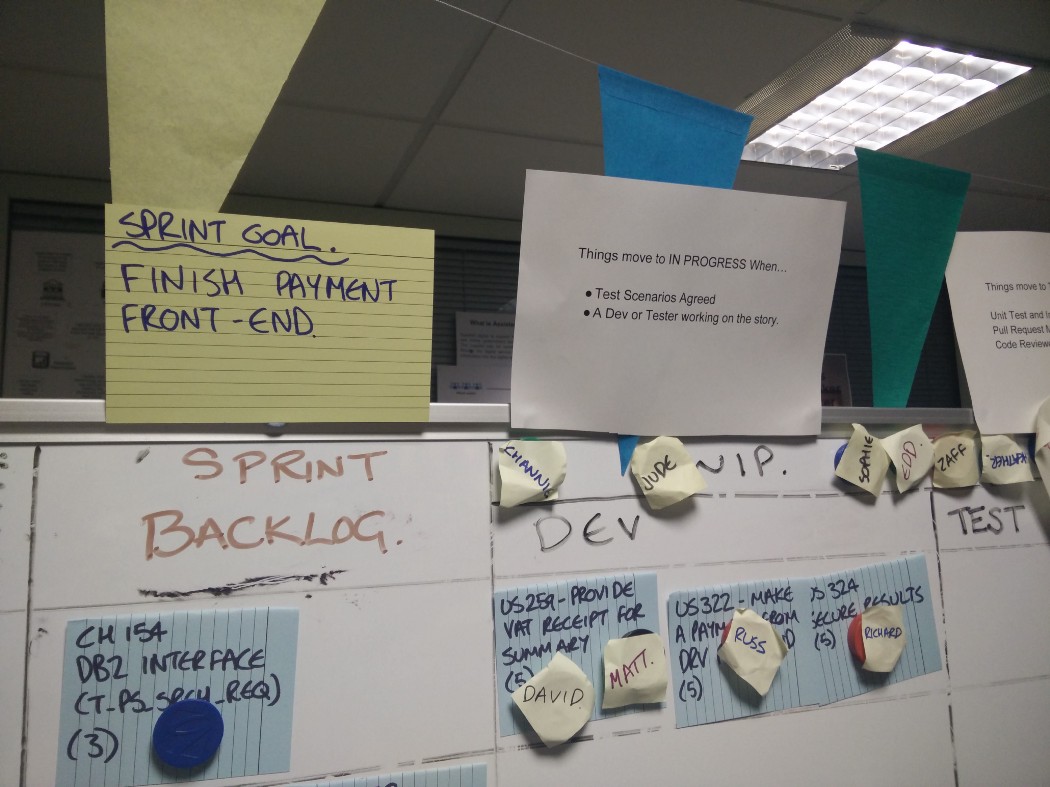 SPRINT GOAL.
FINISH PAYMENT
FRONT-END.
Things move to IN PROGRESS When...
● Test Scenarios Agreed
● A Dev or Tester working on the story.
Things move to
Unit Test and
Pull Request
Code Reviewe
SPRINT
BACKLOG.
CHANNIE
JUDE
WIP.
SOPHIE
EDD.
ZAFF
DEV
TEST
CH 154
DB2 INTERFACE
(T_PS_SRCH_REQ)
(3)
US259-PROVIDE
VAT RECEIPT FOR
SUMMARY
(5)
DAVID
MATT.
US322-MAKE
A PAYM FROM
DRV
(5)
RUSS
US 324
SECURE RESULTS
(5)
RICHARD